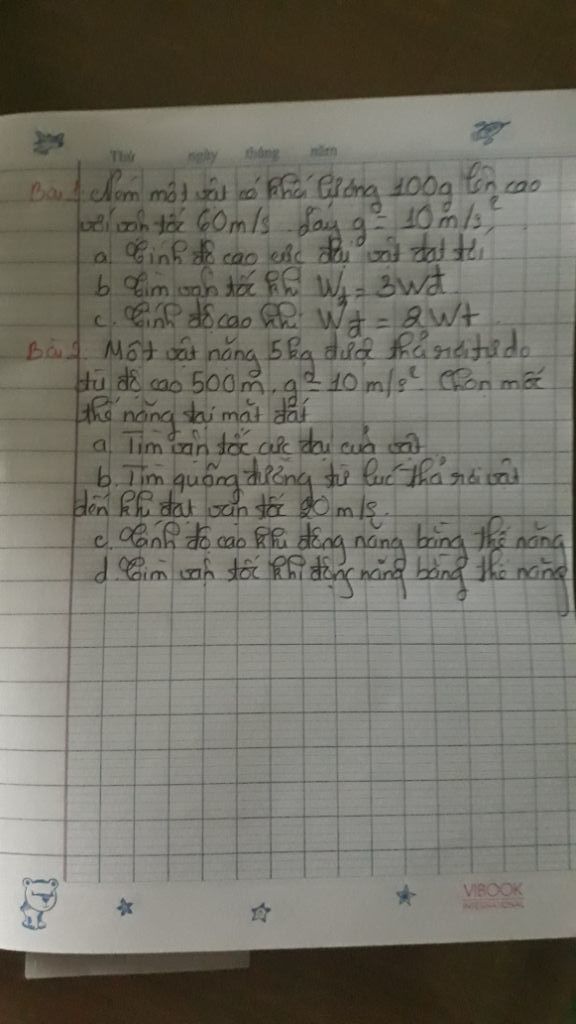 Thứ ngày tháng năm
Bài 1. Ném một vật có khối lượng 100g lên cao
với vận tốc 60m/s. Lấy g = 10m/s²,
a. Tính độ cao cực đại vật đạt tới
b. Tìm vận tốc khi Wt = 3Wđ
c. Tính độ cao khi Wđ = 2Wt
Bài 2. Một vật nặng 5kg được thả rơi tự do
từ độ cao 500m, g = 10m/s². Chọn mốc
thế năng tại mặt đất
a. Tìm vận tốc cực đại của vật
b. Tìm quãng đường từ lúc thả rơi vật
đến khi đạt vận tốc 20m/s.
c. Tính độ cao khi động năng bằng thế năng
d. Tìm vận tốc khi động năng bằng thế năng
VIBOOK
INTERNATIONAL